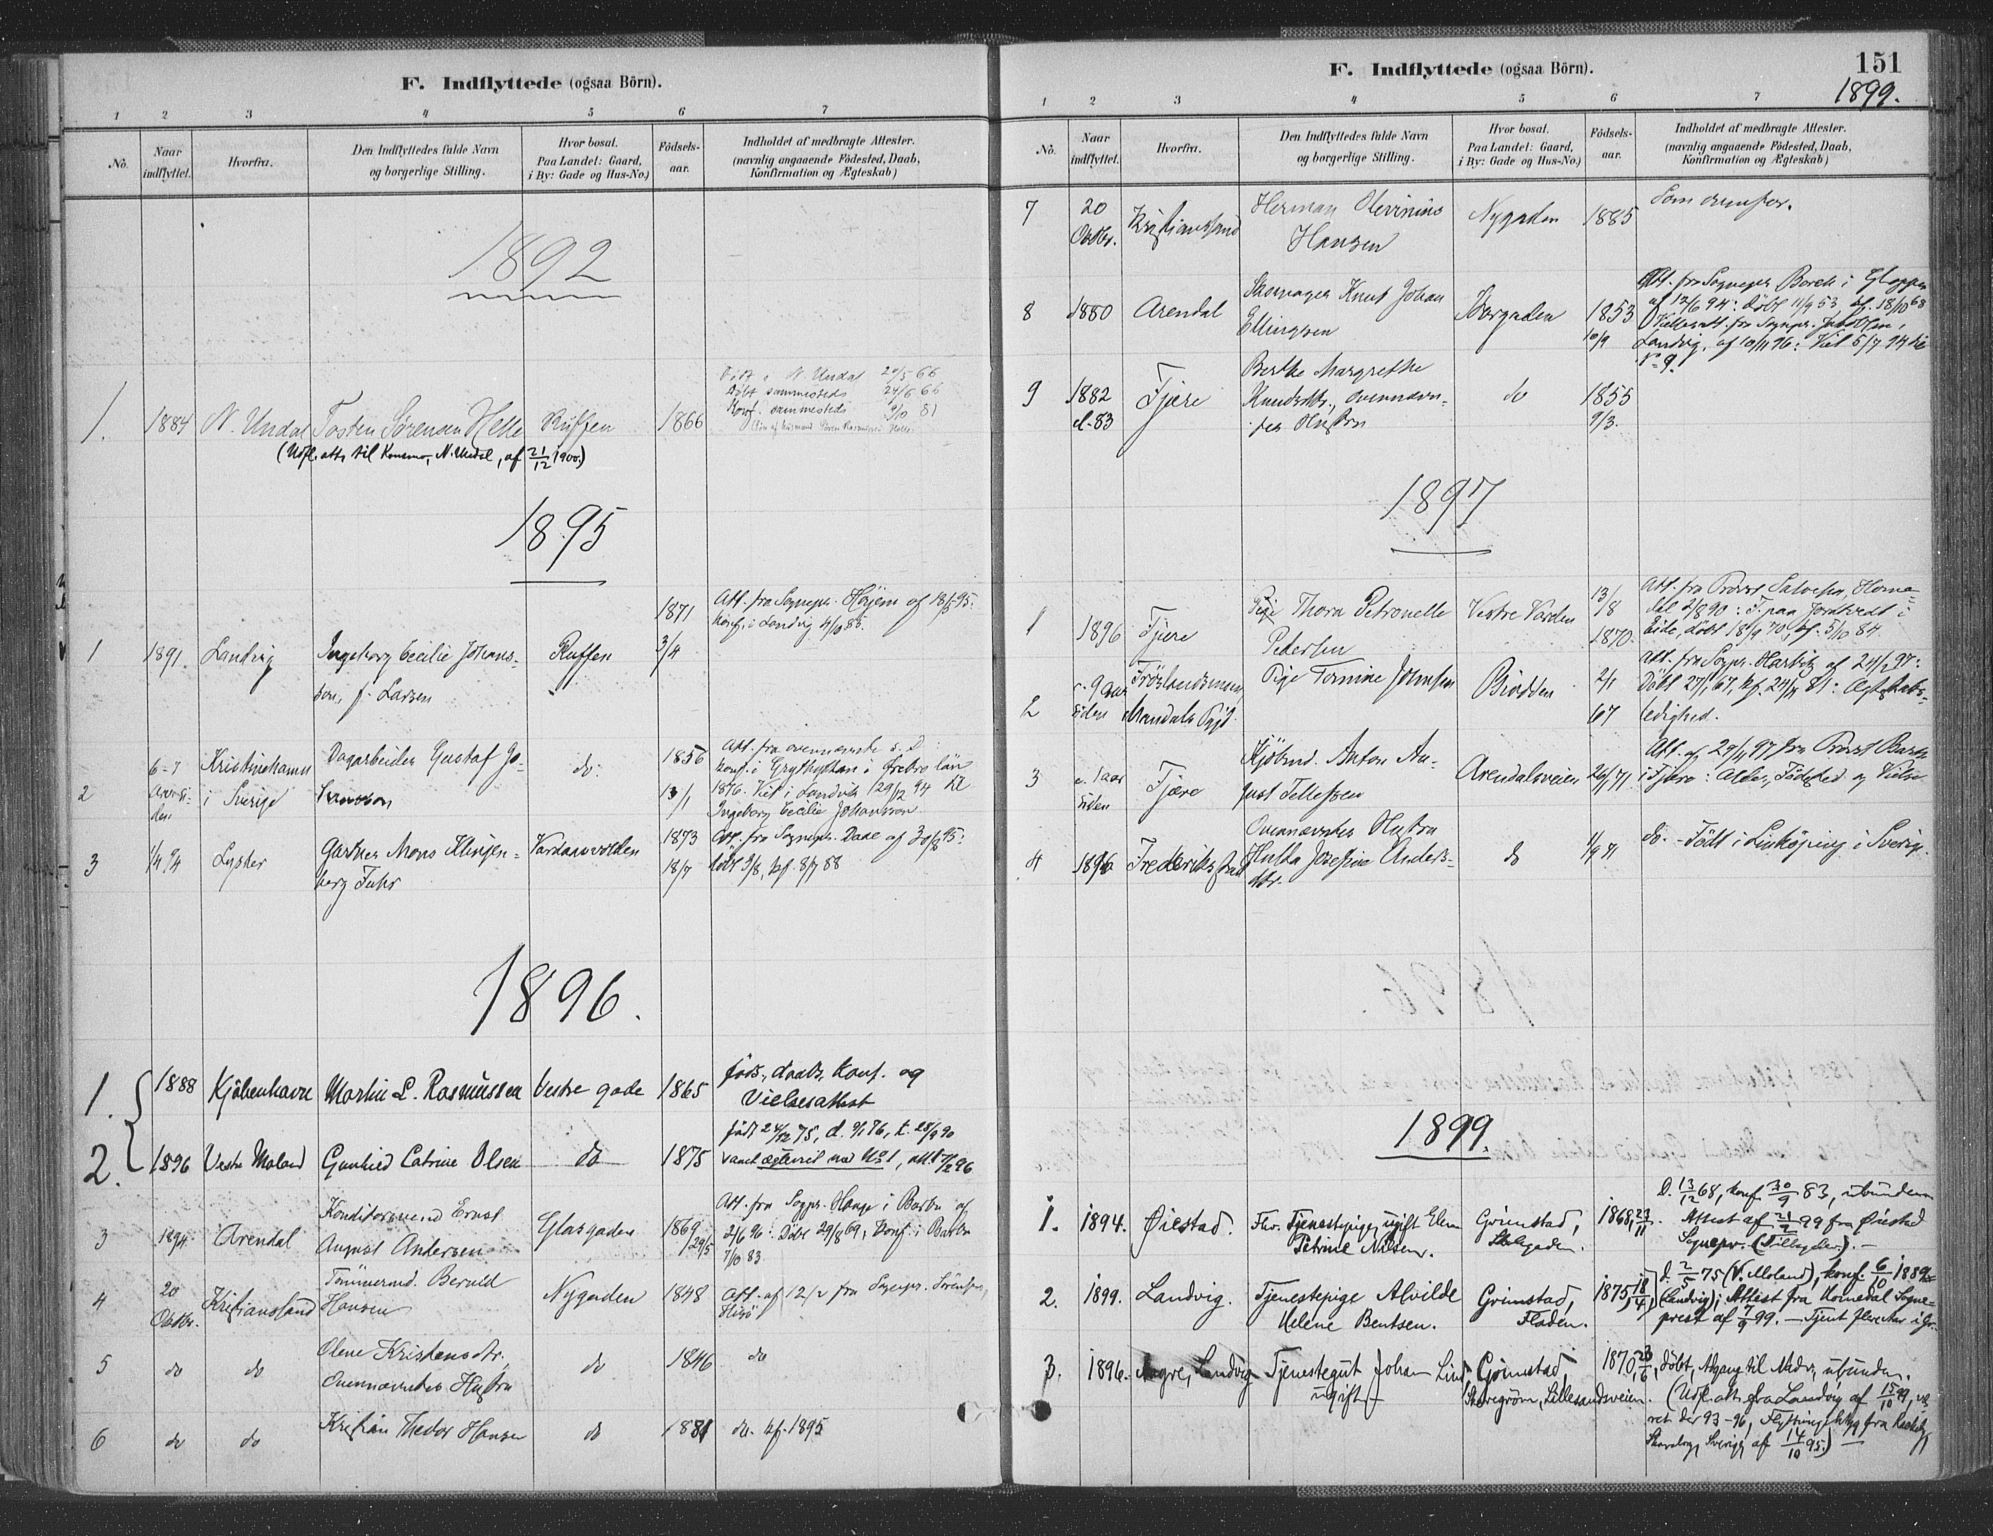 F. Indflyttede (ogsaa Börn).
1 2 3 4 5 6 7
No. Naar indflyttet. Hvorfra. Den Indflyttedes fulde Navn og borgerlige Stilling. Hvor bosat. Paa Landet: Gaard, i By: Gade og Hus-No.) Födsels-aar. Indholdet af medbragte Attester. (navnlig angaaende Födested, Daab, Konfirmation og Ægteskab)
1892
Født i N. Undal 20/5 66
Døbt sammesteds 24/6 66
Konf. sammesteds 9/10 81
1. 1884 N. Undal Tosten Sørensen Helle Ruffen 1866
(Udfl. att. til Konsmo, N. Undal, af 21/12 1900.)
1895
1871 Att. fra Sognepr. Høyem af 18/5 95:
konf. i Landvig 4/10 85.
1 1891. Landvig Ingeborg Cecilie Johans- Ruffen 3/4
son, f. Larsen
6-7 Kristinehamn Dagarbeider Gustaf Jo- do. 1856 Att. fra ovennævnte s. D.
konf. i Grythyttan i Ørebro län
2 i Sverige hansson 13/1 1876. Viet i Landvik 29/12 94 til
Ingeborg Cecilie Johansson
3 1/4 94 Lyster Gartner Mons Klingen- Vardaasvolden 1873 Att. fra Sognepr. Daae af 30/8 95:
berg Fuhr 18/7 døbt 3/8, kf. 8/7 88
1896.
1. 1888 Kjøbenhavn Martin L. Rasmussen Vestre gade 1865 føds., daabs, konf. og
Vielsesattest
født 24/12 75, d. 9/1 76, k. 28/9 90
2. 1896 Vestre Moland Gunhild Catrine Olsen do 1875 samt ægteviet med No 1, att.
3 1894 Arendal Konditorsvend Ernst Glasgaden 1869 Att. fra Sogpr. Hauge i Barbu af
August Andersen 29/5 2/6 96: Døbt 29/8 69, Konf. i Barbu
7/10 83
4 20 Oktbr. Kristianssand Tømmermd. Beruld Nygaden 1848 Att. af 12/2 fra Sognepr. Sørensen,
Hansen Hisø
5 do do Olene Kristensdtr, do 1846 do
Ovennævntes Hustru
6 do do Kristian Thedor Hansen do 1881 do. kf. 1895
151
1899.
F. Indflyttede (ogsaa Börn).
1 2 3 4 5 6 7
No. Naar indflyttet. Hvorfra. Den Indflyttedes fulde Navn og borgerlige Stilling. Hvor bosat. Paa Landet: Gaard, i By: Gade og Hus-No.) Födsels-aar. Indholdet af medbragte Attester. (navnlig angaaende Födested, Daab, Konfirmation og Ægteskab)
7 20 Oktbr. Kristianssand Herman Olevinius Nygaden 1885 Som ovenfor.
Hansen
Att. fra Sognepr. Borch i Gloppen
8 1880 Arendal Knut Johan Storgaden 1853 af 12/6 94: døbt 11/9 53, kf. 18/10 68
Ellingsen 10/9 Vielsesatt. fra Sognepr. Jacobsen,
Landvig, af 10/11 96: Viet 5/7
No 9.
9 1882 el. 83 Fjære Berthe Margrethe do 1855
Knudsdtr., ovennævn- 9/3.
tes Hustru
1897
1 1896 Fjære Pige Thora Petronelle Vestre Varden 13/8 1870. Att. fra Provst Salvesen, Home-
Pedersen dal 2/8 90: F. paa Jordtvedt i
Eide, døbt 18/9 70, kf. 5/10 84.
2 c. 9 Aar siden Frøslandsmoen, Mandals Pgjd. Pige Tomine Johnsen Biodden 2/1 67 Att. fra Sogpr. Harbitz af 24/2 97:
Døbt 27/1 67, kf. 24/4 81: Ægteskabs-
ledighed.
3 c. 1 aar siden Fjære Kjøbmd. Anton Au- Arendalsveien 26/1 71 Att. af 29/4 97 fra Provst Barth
gust Tellefsen i Fjære: Alder, Fødested og Vielse
4 1896 Frederikstad Ovennævntes Hustru do 1/9 71 do. - Født i Linköping i Sverige.
Hulda Josefine Anders-
dtr.
1899.
1. 1894. Øiestad. Fhv. Tjenestepige, ugift Elen Grimstad, 1868, 23/11. D. 13/12 68, konf. 30/9 83, ubunden.
Petrine Nilsen. Skolegaden. Attest af 21/2 99 fra Øiestad
Sognepr. (Tilbyder). —
2. 1899. Landvig. Tjenestepige Alvilde Grimstad, 1875, 18/4 d. 2/5 75 (V. Moland), konf. 6/10 1889
Helene Bentsen. Floden. (Landvig); Attest fra Homedal Sogne-
prest af 7/9 99. — Tjent flere Aar i Gr.
3. 1896. Aagre, Landvig Tjenestegut Johan Lind, Grimstad, 1870, 23/6, døbt, Adgang til Nadv., ubunden.
ugift Skaregrøm, Lillesandsveien. (Udfl. att. fra Landvig af 15/10 99, væ-
ret der 93-96, Flytningsbetyg fra
Skaraborg, Sverige, af 14/10 95.) —